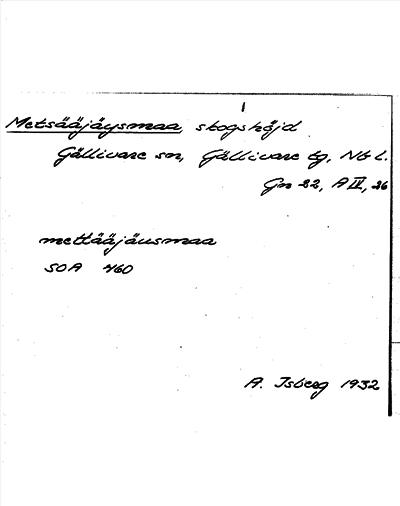 Metsääjäysmaa, skogshöjd
Gällivare sn, Gällivare tg, Nb l.
Gn 22, A IV, 26
mettääjäusmaa
SOA 460
A. Isberg 1932